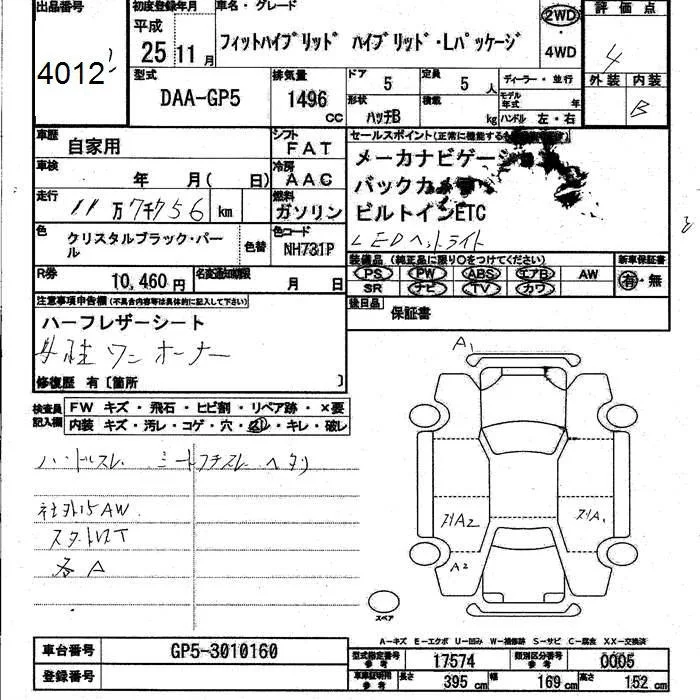 出品番号 初度登録年月 車名・グレード 2WD 評価点
平成
25 11月 フィットハイブリッド ハイブリッド・Lパッケージ ・ 4
4012 4WD
型式 排気量 ドア 定員 ディーラー・並行 外装 内装
DAA-GP5 1496 CC 5 5人 モデル年式 年 B
形状 積載 ハンドル 左・右
ハッチB kg
車歴 シフト セールスポイント(正常に機能する
自家用 FAT
車検 冷房 メーカナビゲー
年 月( 日) AAC バックカメ
走行 燃料 ビルトインETC
11万7千756 km ガソリン LEDヘッドライト
色 色替 色コード
クリスタルブラック・パール NH731P 装備品(純正品に限り○をつけてください) 新車保証書
PS PW ABS エアB AW 有・無
R券 10,460円 名変通知期限 月 日 SR ナビ TV カワ
注意事項申告欄(不具合内容等は具体的に記入して下さい) 後日品 保証書
ハーフレザーシート
ワンオーナー
修復歴 有〔箇所 〕
検査員記入欄 FW キズ・飛石・ヒビ割・リペア跡・×要
内装 キズ・汚レ・コゲ・穴・スレ・キレ・破レ
ハンドルスレ シートフチスレ ヘタリ
社外15AW
各A
A1
A2
A1
A2
スペア
A-キズ E-エクボ U-凹み W-補修跡 S-サビ C-腐食 XX-交換済
車台番号 GP5-3010160 型式指定番号 参考 17574 類別区分番号 参考 0005
登録番号 車車証明用 参考 長さ 395cm 幅 169cm 高さ 152cm